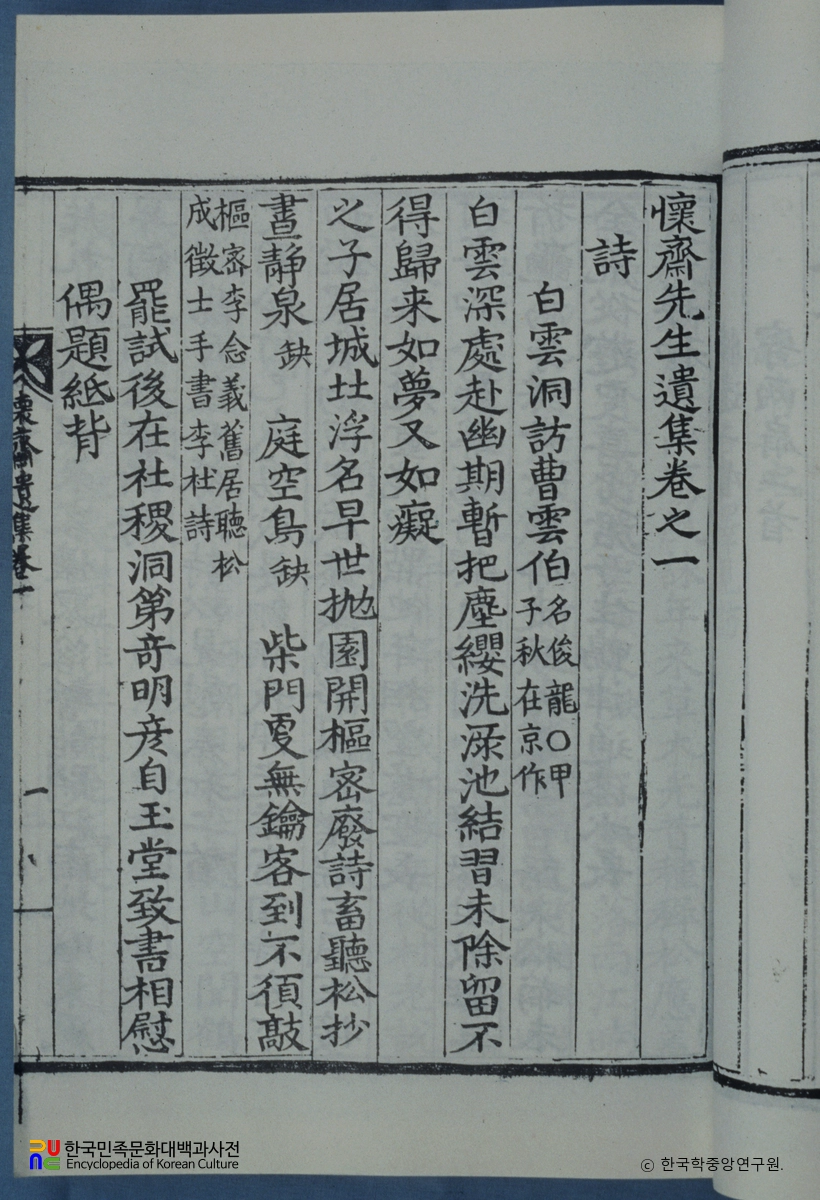 懷齋先生遺集卷之一
詩
白雲洞訪曹雲伯 名俊龍○甲
子秋在京作
白雲深處赴幽期暫把塵纓洗渌池結習未除留不
得歸来如夢又如癡
之子居城北浮名早世抛園開樞密廢詩畜聽松抄
晝静泉 缺 庭空鳥 缺 柴門夏無鑰客到不須敲
樞密李念義舊居聽松
成徵士手書李杜詩
罷試後在社稷洞第奇明彦自玉堂致書相慰
偶題紙背
懷齋遺集卷一
一
한국민족문화대백과사전
Encyclopedia of Korean Culture
ⓒ 한국학중앙연구원.